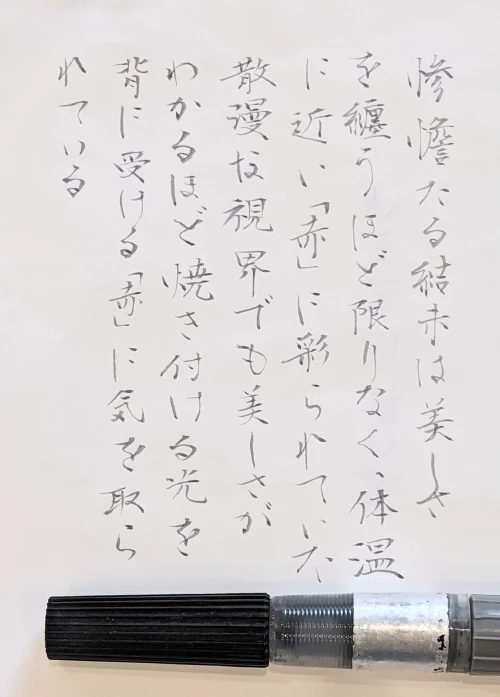 惨憺たる結末は美しさ
を纏うほど限りなく、体温
に近い「赤」に彩られていた
散漫な視界でも美しさが
わかるほど焼き付ける光を
背に受ける「赤」に気を取ら
れている